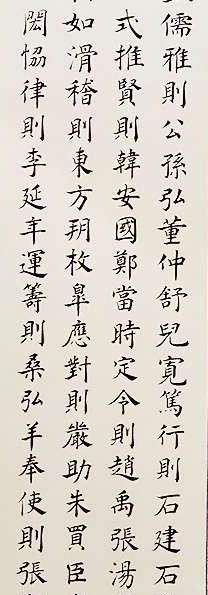 儒雅則公孫弘董仲舒兒寬篤行則石建石
式推賢則韓安國鄭當時定令則趙禹張湯
如滑稽則東方朔枚皐應對則嚴助朱買臣
閎恊律則李延年運籌則桑弘羊奉使則張